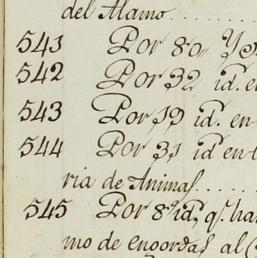 del Alamo..........
543 Por 80,
542 Por 32 id. en
543 Por 19 id. en
544 Por 31 id en
ria de Animas.....
545 Por 8 id, q.
mo de engordas al